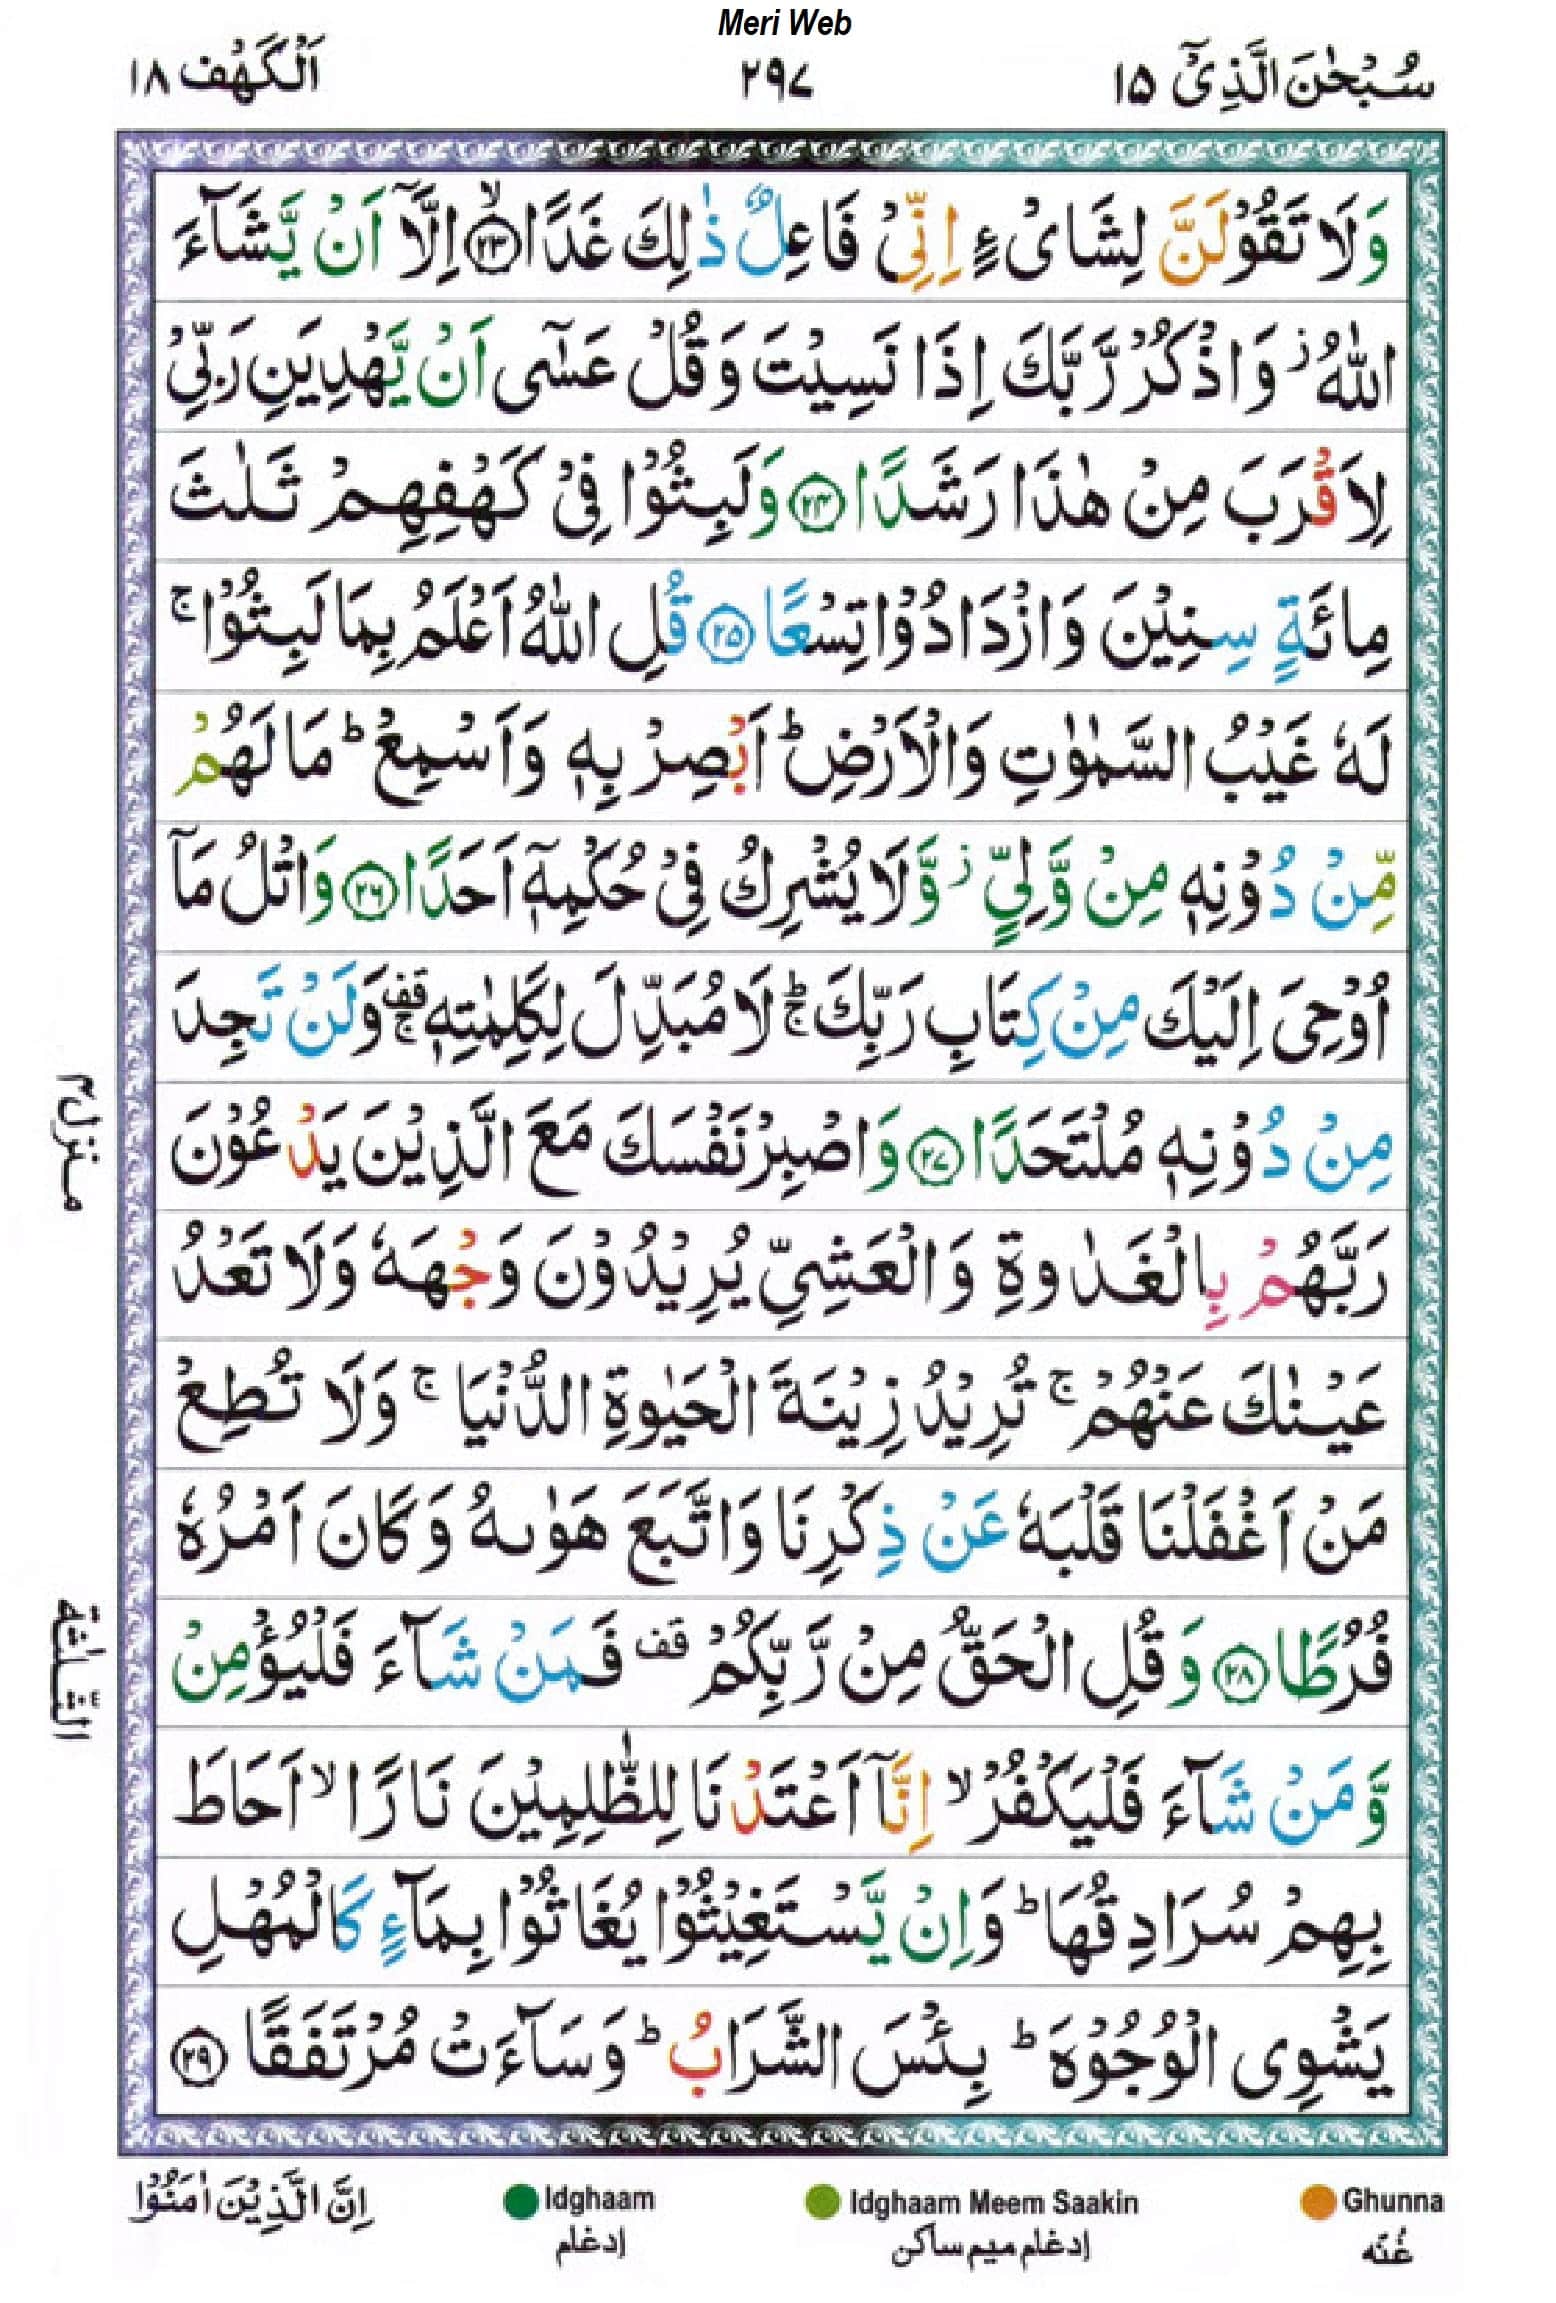 Meri Web
سُبْحٰنَ الَّذِىْٓ ۱۵
۲۹۷
اَلْكَهْف ۱۸
وَلَا تَقُوْلَنَّ لِشَاىْءٍ اِنِّىْ فَاعِلٌ ذٰلِكَ غَدًا ۙ﴿۲۳﴾ اِلَّآ اَنْ يَّشَآءَ
اللّٰهُ ز وَاذْكُرْ رَّبَّكَ اِذَا نَسِيْتَ وَقُلْ عَسٰٓى اَنْ يَّهْدِيَنِ رَبِّىْ
لِاَقْرَبَ مِنْ هٰذَا رَشَدًا ﴿۲۴﴾ وَلَبِثُوْا فِىْ كَهْفِهِمْ ثَلٰثَ
مِائَةٍ سِنِيْنَ وَازْدَادُوْا تِسْعًا ﴿۲۵﴾ قُلِ اللّٰهُ اَعْلَمُ بِمَا لَبِثُوْا ۚ
لَهٗ غَيْبُ السَّمٰوٰتِ وَالْاَرْضِ ؕ اَبْصِرْ بِهٖ وَاَسْمِعْ ؕ مَا لَهُمْ
مِّنْ دُوْنِهٖ مِنْ وَّلِىٍّ ز وَّلَا يُشْرِكُ فِىْ حُكْمِهٖٓ اَحَدًا ﴿۲۶﴾ وَاتْلُ مَآ
اُوْحِىَ اِلَيْكَ مِنْ كِتَابِ رَبِّكَ ؕۚ لَا مُبَدِّلَ لِكَلِمٰتِهٖ قف ۚ وَلَنْ تَجِدَ
مِنْ دُوْنِهٖ مُلْتَحَدًا ﴿۲۷﴾ وَاصْبِرْ نَفْسَكَ مَعَ الَّذِيْنَ يَدْعُوْنَ
رَبَّهُمْ بِالْغَدٰوةِ وَالْعَشِىِّ يُرِيْدُوْنَ وَجْهَهٗ وَلَا تَعْدُ
عَيْنٰكَ عَنْهُمْ ۚ تُرِيْدُ زِيْنَةَ الْحَيٰوةِ الدُّنْيَا ۚ وَلَا تُطِعْ
مَنْ اَغْفَلْنَا قَلْبَهٗ عَنْ ذِكْرِنَا وَاتَّبَعَ هَوٰىهُ وَكَانَ اَمْرُهٗ
فُرُطًا ﴿۲۸﴾ وَقُلِ الْحَقُّ مِنْ رَّبِّكُمْ قف فَمَنْ شَآءَ فَلْيُؤْمِنْ
وَّمَنْ شَآءَ فَلْيَكْفُرْ ۙ اِنَّآ اَعْتَدْنَا لِلظّٰلِمِيْنَ نَارًا ۙ اَحَاطَ
بِهِمْ سُرَادِقُهَا ؕ وَاِنْ يَّسْتَغِيْثُوْا يُغَاثُوْا بِمَآءٍ كَالْمُهْلِ
يَشْوِى الْوُجُوْهَ ؕ بِئْسَ الشَّرَابُ ؕ وَسَآءَتْ مُرْتَفَقًا ﴿۲۹﴾
منزل۴
الثلٰثة
Ghunna
غُنّه
Idghaam Meem Saakin
إدغام ميم ساكن
Idghaam
إدغام
اِنَّ الَّذِيْنَ اٰمَنُوْا